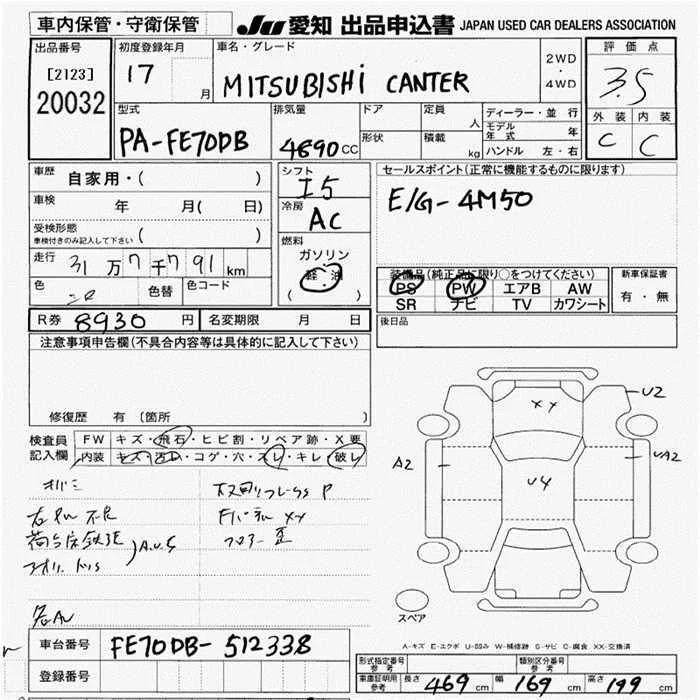 車内保管・守衛保管
JU 愛知 出品申込書 JAPAN USED CAR DEALERS ASSOCIATION
出品番号
[2123]
20032
初度登録年月
17 月
車名・グレード
MITSUBISHi CANTER
2WD
・
4WD
評価点
3.5
外装 内装
C C
型式
PA-FE70DB
排気量
4890 CC
ドア
形状
定員
人
積載
kg
ディーラー・並行
モデル年式 年
ハンドル 左・右
車歴 自家用・( )
車検 年 月( 日)
受検形態
車検付きのみ記入して下さい ( )
走行 31万7千7 91 km
色 色替 色コード
シフト
I5
冷房
AC
燃料
ガソリン
軽油
( )
セールスポイント(正常に機能するものに限ります)
E/G-4M50
装備品(純正品に限り○をつけてください)
PS PW エアB AW
SR ナビ TV カワシート
新車保証書
有・無
R券 8930 円 名変期限 月 日
後日品
注意事項申告欄(不具合内容等は具体的に記入して下さい)
修復歴 有 (箇所 )
検査員
記入欄
FW キズ・飛石・ヒビ割・リペア跡・X要
内装 キズ・汚レ・コゲ・穴・スレ・キレ・破レ
XX
U2
A2
UA2
U4
スペア
A-キズ E-エクボ U-凹み W-補修跡 S-サビ C-腐食 XX-交換済
車台番号 FE70DB-512338
登録番号
形式指定番号
参考
類別区分番号
参考
車庫証明用
参考
長さ 469 cm 幅 169 cm 高さ 199 cm